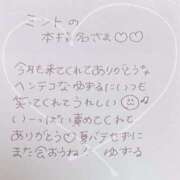 ミントの
本指名さま♡♡
今月も来てくれてありがとうな
ヘンテコなゆずるにいつも
笑ってくれてうれしい
いーっぱい責めてくれて
ありがとう♡夏バテせずに
また会おうね! ゆずる